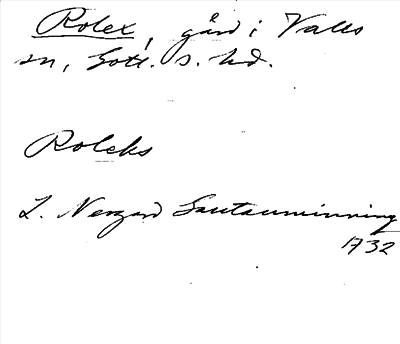 Rolex, gård i Valls
sn, Gotl. s. hd.
Roleks
L. Nergård Santauminning
1732